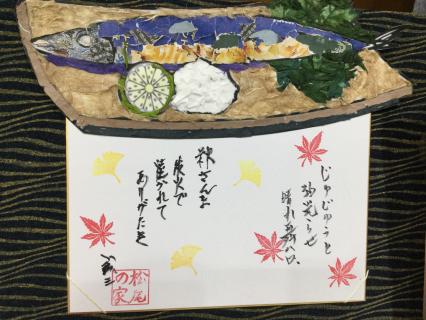 じゅじゅうと
光らせ
晴れ舞台
秋さんま
炭火で
焼かれて
ありがたき
松尾
の家